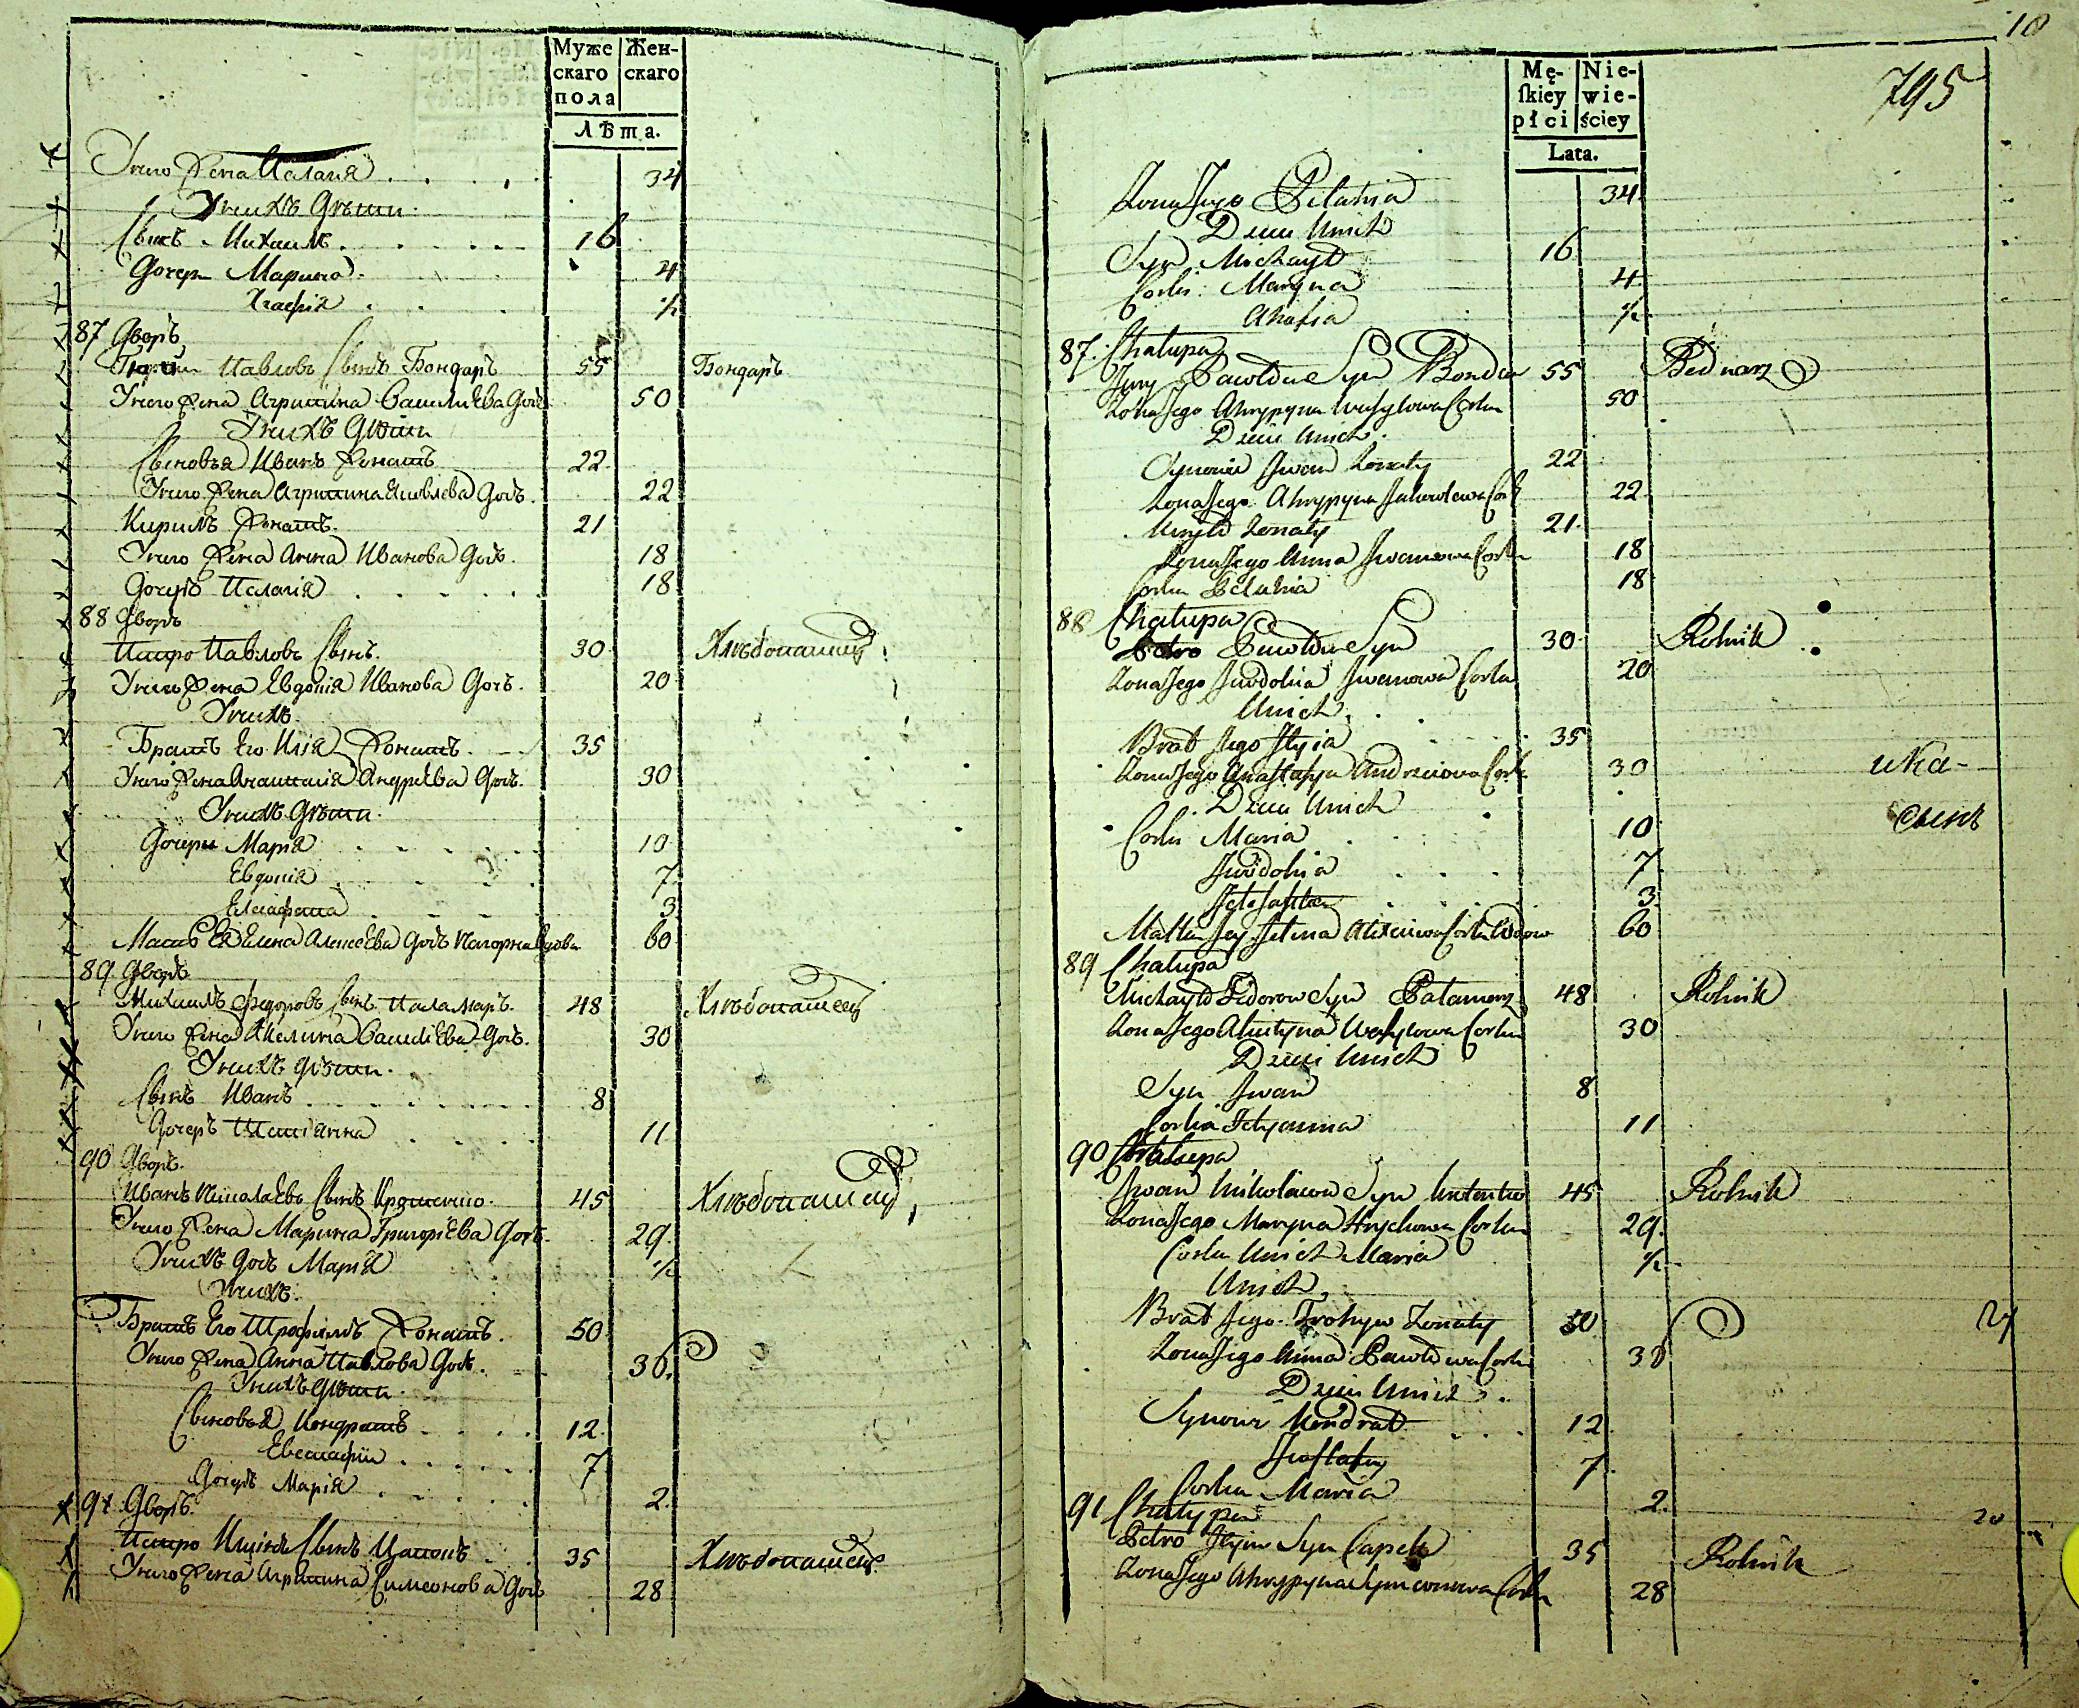 Муже скаго пола
Жен- скаго
Лѣта.
У него жена Пелагія 34
У нихъ дѣти
Сынъ Михаилъ 16
Дочери Марина 4
Агафія ½
87 Дворъ
Павловъ Сынъ Бондаръ 55 Бондаръ
У него жена Агрипина Василиева Доч 50
У нихъ Дѣти
Сыновья Иванъ женатъ 22
У него жена Агрипина Яковлева Дочь 22
Кирилъ женатъ 21
У него жена Анна Иванова Дочь 18
Дочерь Пелагія 18
88 Дворъ
Петро Павловъ Сынъ 30 Хлѣбопашец
У него жена Евдокія Иванова Дочь 20
У нихъ
Братъ Его Илія женатъ 35
У него жена Анастасія Андрѣева Дочь 30
У нихъ Дѣти
Дочери Марія 10
Евдокія 7
3
Мать Ея Елена Алексѣева Дочь вдова 60
89 Дворъ
Михаилъ Федоровъ Сынъ Паламаръ 48 Хлѣбопашец
У него жена Акелина Василіева Дочь 30
У нихъ дѣти
Сынъ Иванъ 8
Дочерь Татіанна 11
90 Дворъ
Иванъ Николаевъ Сынъ 45 Хлѣбопашец
У него жена Марина Григоріева Дочь 29
У нихъ Дочь Марія ½
У нихъ
Братъ Его Трофимъ женатъ 50
У него жена Анна Павлова Дочь 36
У нихъ дѣти
Сыновья Кондратъ 12
Евстафіи 7
Дочерь Марія 2
91 Дворъ
Петро Иліинъ Сынъ Цапокъ 35 Хлѣбопашец
У него жена Агрипина Симеонова Доч 28
10
795
Mę- skiey płci
Nie- wie- ściey
Lata.
Żona Jego Pelahia 34
Dzieci Unich
Syn Michayło 16
Corki Maryna 4
Ahafia ½
87 Chałupa
Jury Pawłow Syn Bondar 55 Bednarz
Żona Jego Ahrypyna Wasylowa Corka 50
Dzieci Unich
Synowie Jwan żonaty 22
Żona Jego Ahrypyna Jakowlewa Cork 22
Kiryło żonaty 21
Żona Jego Anna Jwanowa Corka 18
Corka Pelahia 18
88 Chałupa
Petro Pawłow Syn 30 Rolnik
Żona Jego Jwdokia Jwanowa Corka 20
Unich
Brat Jego Jlyia 35
Żona Jego Anastazya Andrzeiowa Cork 30
ика-
Dzieci Unich
сынъ
Corki Maria 10
Jwdokia 7
3
Matka Jey Jelena Alexiiewa Corka Wdow 60
89 Chałupa
Michayło Fedorow Syn Pałamarz 48 Rolnik
Żona Jego Akulyna Wasylowa Corka 30
Dzieci Unich
Syn Jwan 8
Corka Tetyanna 11
90 Chałupa
Jwan Mikołaiow Syn 45 Rolnik
Żona Jego Maryna Hryhorowa Corka 29
Corka Unich Maria ½
Unich
Brat Jego Trohym żonaty 50
Żona Jego Anna Pawłowa Corka 36
Dzieci Unich
Synowie Kondrat 12
Jwstafy 7
Corka Maria 2
91 Chałupa
Petro Jlyin Syn Capok 35 Rolnik
Żona Jego Ahrypyna Symeonowa Corka 28